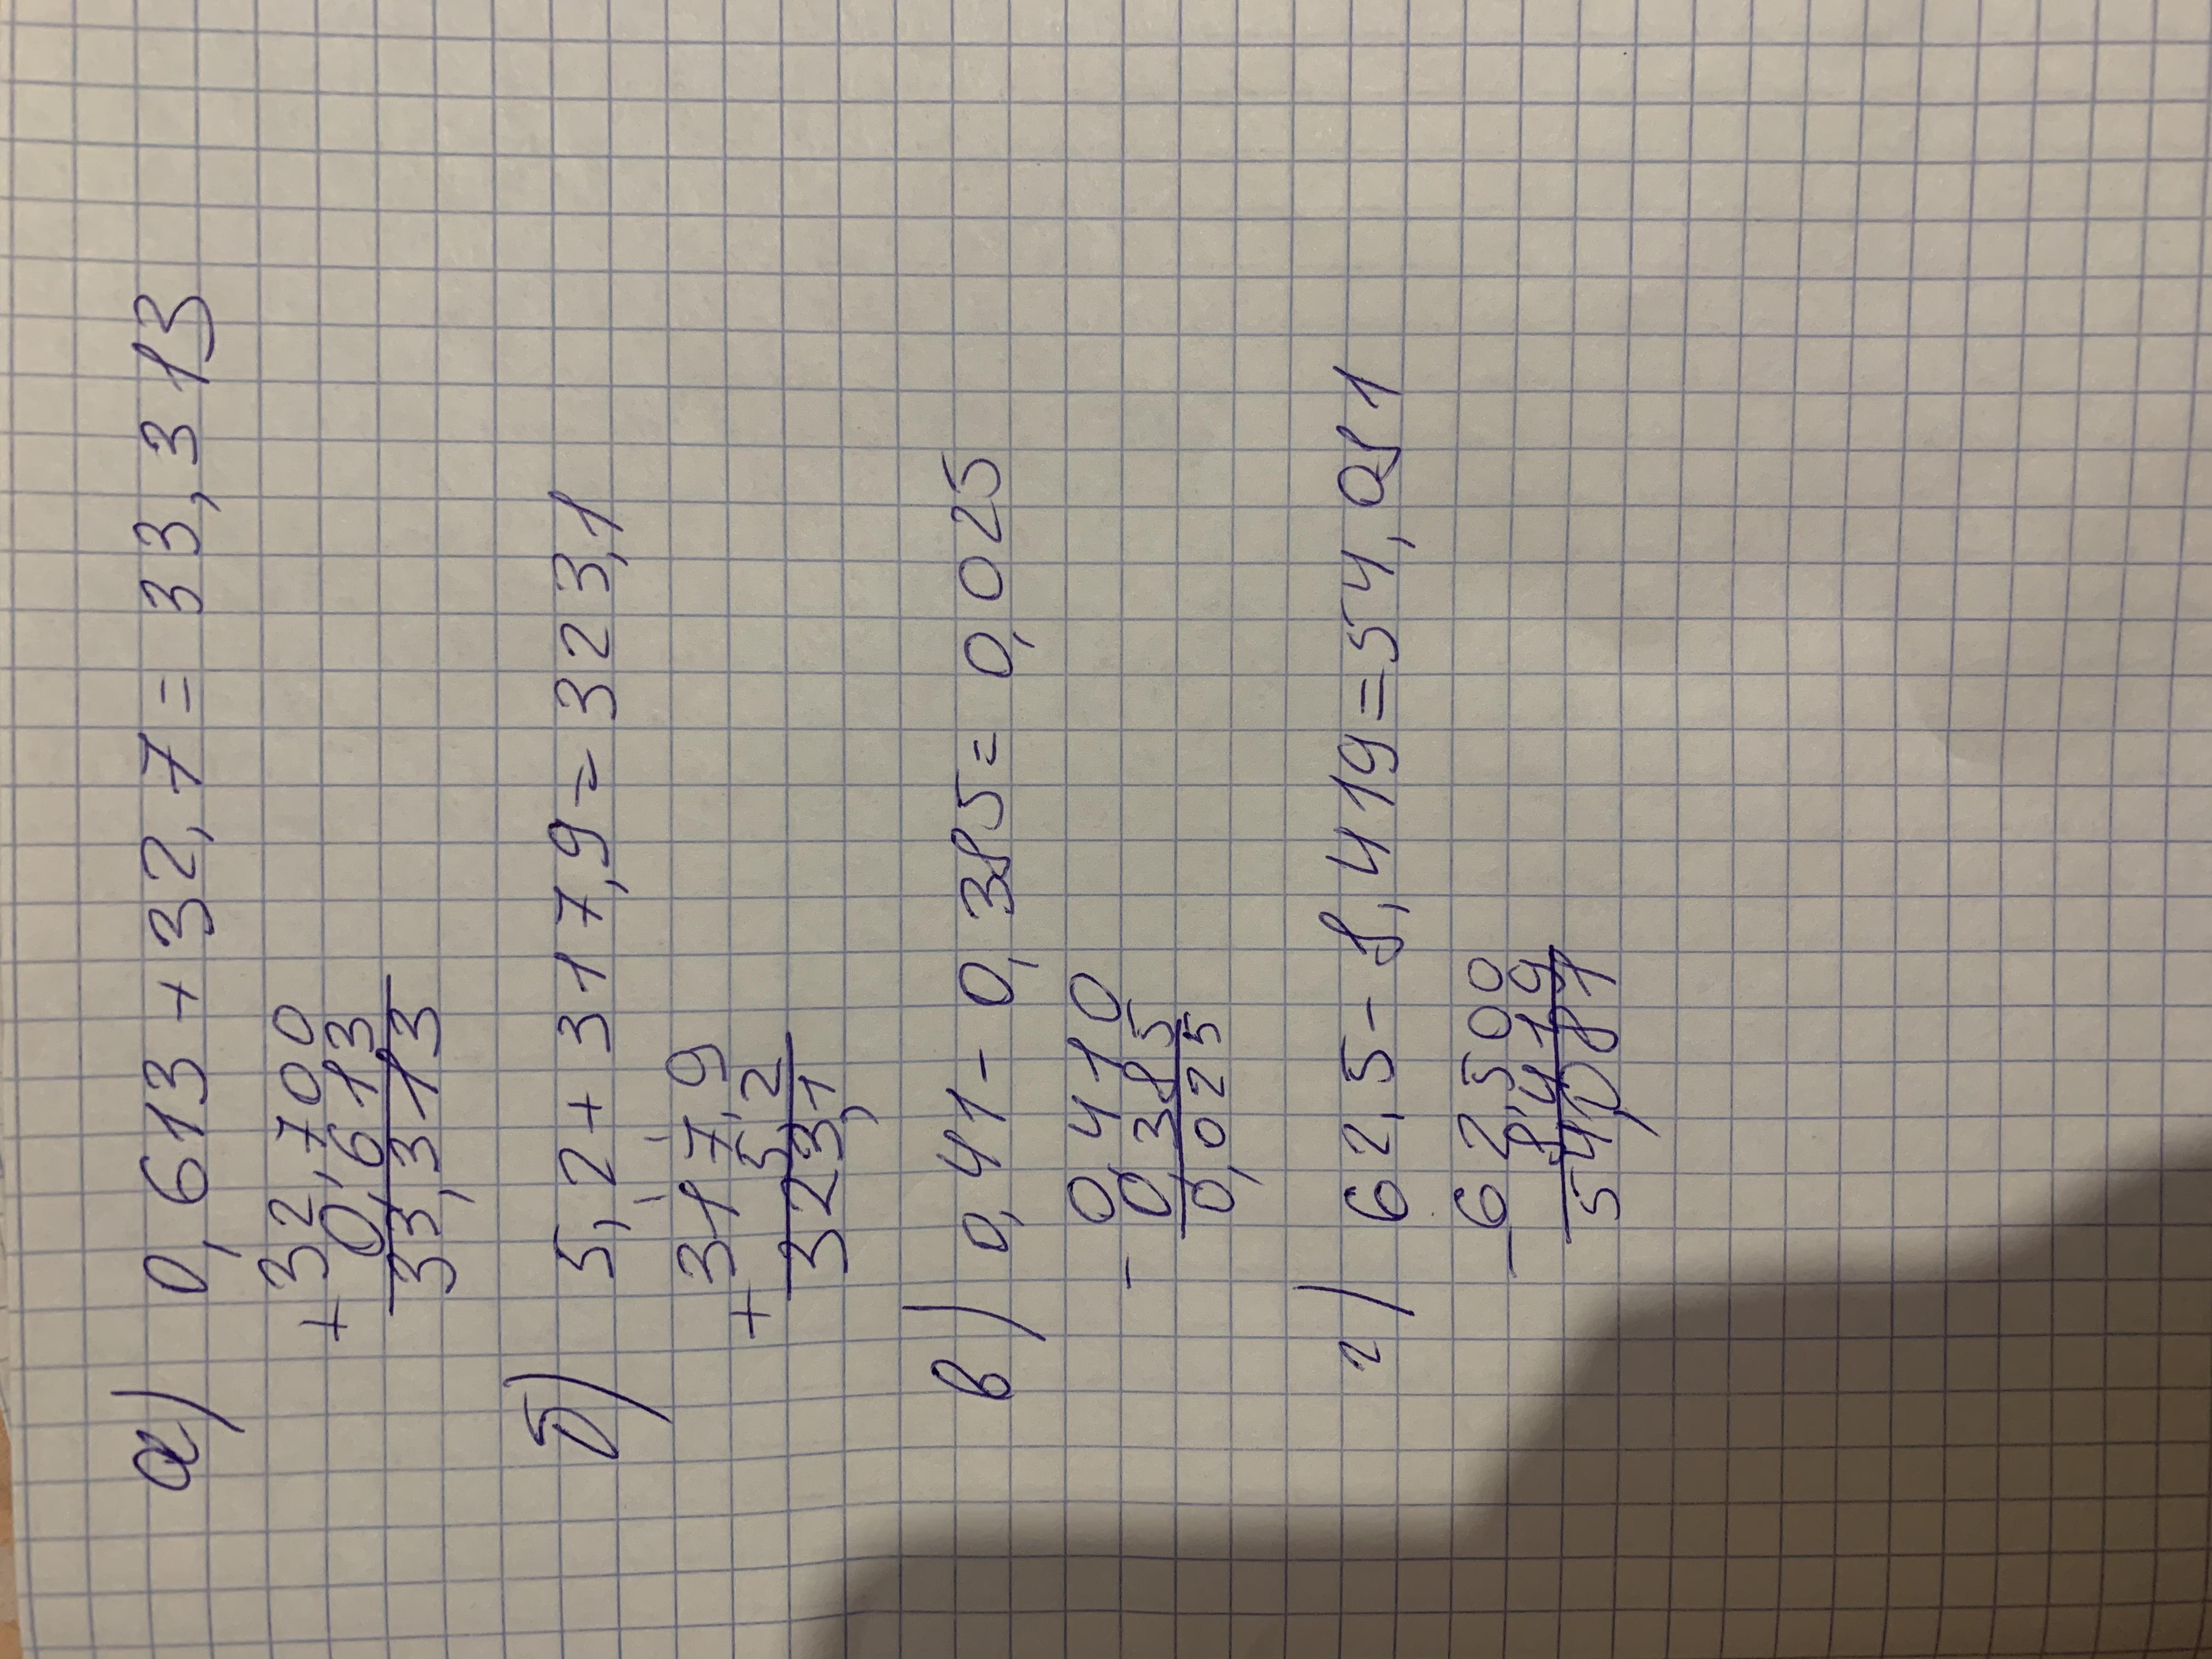 а) 0,613 + 32,7 = 33,313
32,700
+ 0,613
33,313
б) 5,2 + 317,9 = 323,1
317,9
+ 5,2
323,1
в) 0,41 - 0,385 = 0,025
0 410
- 0 385
0,025
г) 62,5 - 8,419 = 54,081
- 62 500
8,419
54,081